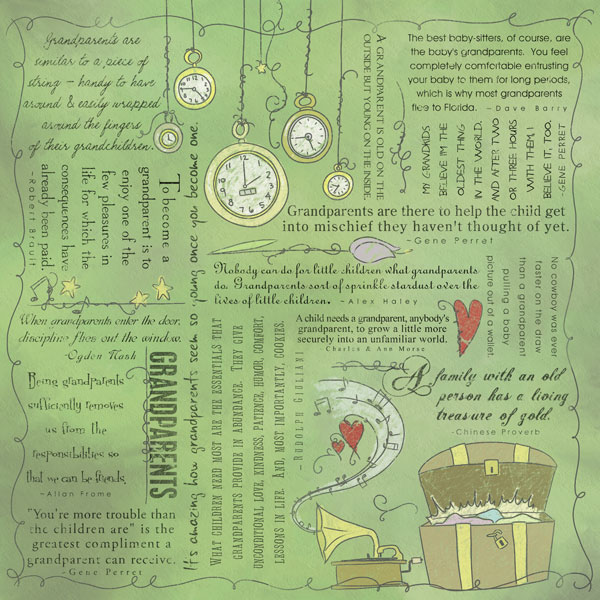 Grandparents are
similar to a piece of
string - handy to have
around & easily wrapped
around the fingers
of their grandchildren.
To become a
grandparent is to
enjoy one of the
few pleasures in
life for which the
consequences have
already been paid.
~Robert Brault
It's amazing how grandparents seem so young once you become one.
A GRANDPARENT IS OLD ON THE
OUTSIDE BUT YOUNG ON THE INSIDE.
The best baby-sitters, of course, are
the baby's grandparents. You feel
completely comfortable entrusting
your baby to them for long periods,
which is why most grandparents
flee to Florida. ~Dave Barry
MY GRANDKIDS
BELIEVE I'M THE
OLDEST THING
IN THE WORLD.
AND AFTER TWO
OR THREE HOURS
WITH THEM, I
BELIEVE IT, TOO.
~GENE PERRET
Grandparents are there to help the child get
into mischief they haven't thought of yet.
~Gene Perret
Nobody can do for little children what grandparents
do. Grandparents sort of sprinkle stardust over the
lives of little children. ~Alex Haley
No cowboy was ever
faster on the draw
than a grandparent
pulling a baby
picture out of a wallet.
A child needs a grandparent, anybody's
grandparent, to grow a little more
securely into an unfamiliar world.
Charles & Ann Morse
When grandparents enter the door,
discipline flies out the window.
~Ogden Nash
GRANDPARENTS
Being grandparents
sufficiently removes
us from the
responsibilities so
that we can be friends.
~Allan Frome
WHAT CHILDREN NEED MOST ARE THE ESSENTIALS THAT
GRANDPARENTS PROVIDE IN ABUNDANCE. THEY GIVE
UNCONDITIONAL LOVE, KINDNESS, PATIENCE, HUMOR, COMFORT,
LESSONS IN LIFE. AND, MOST IMPORTANTLY, COOKIES.
~RUDOLPH GIULIANI
A family with an old
person has a living
treasure of gold.
~Chinese Proverb
"You're more trouble than
the children are" is the
greatest compliment a
grandparent can receive.
~Gene Perret